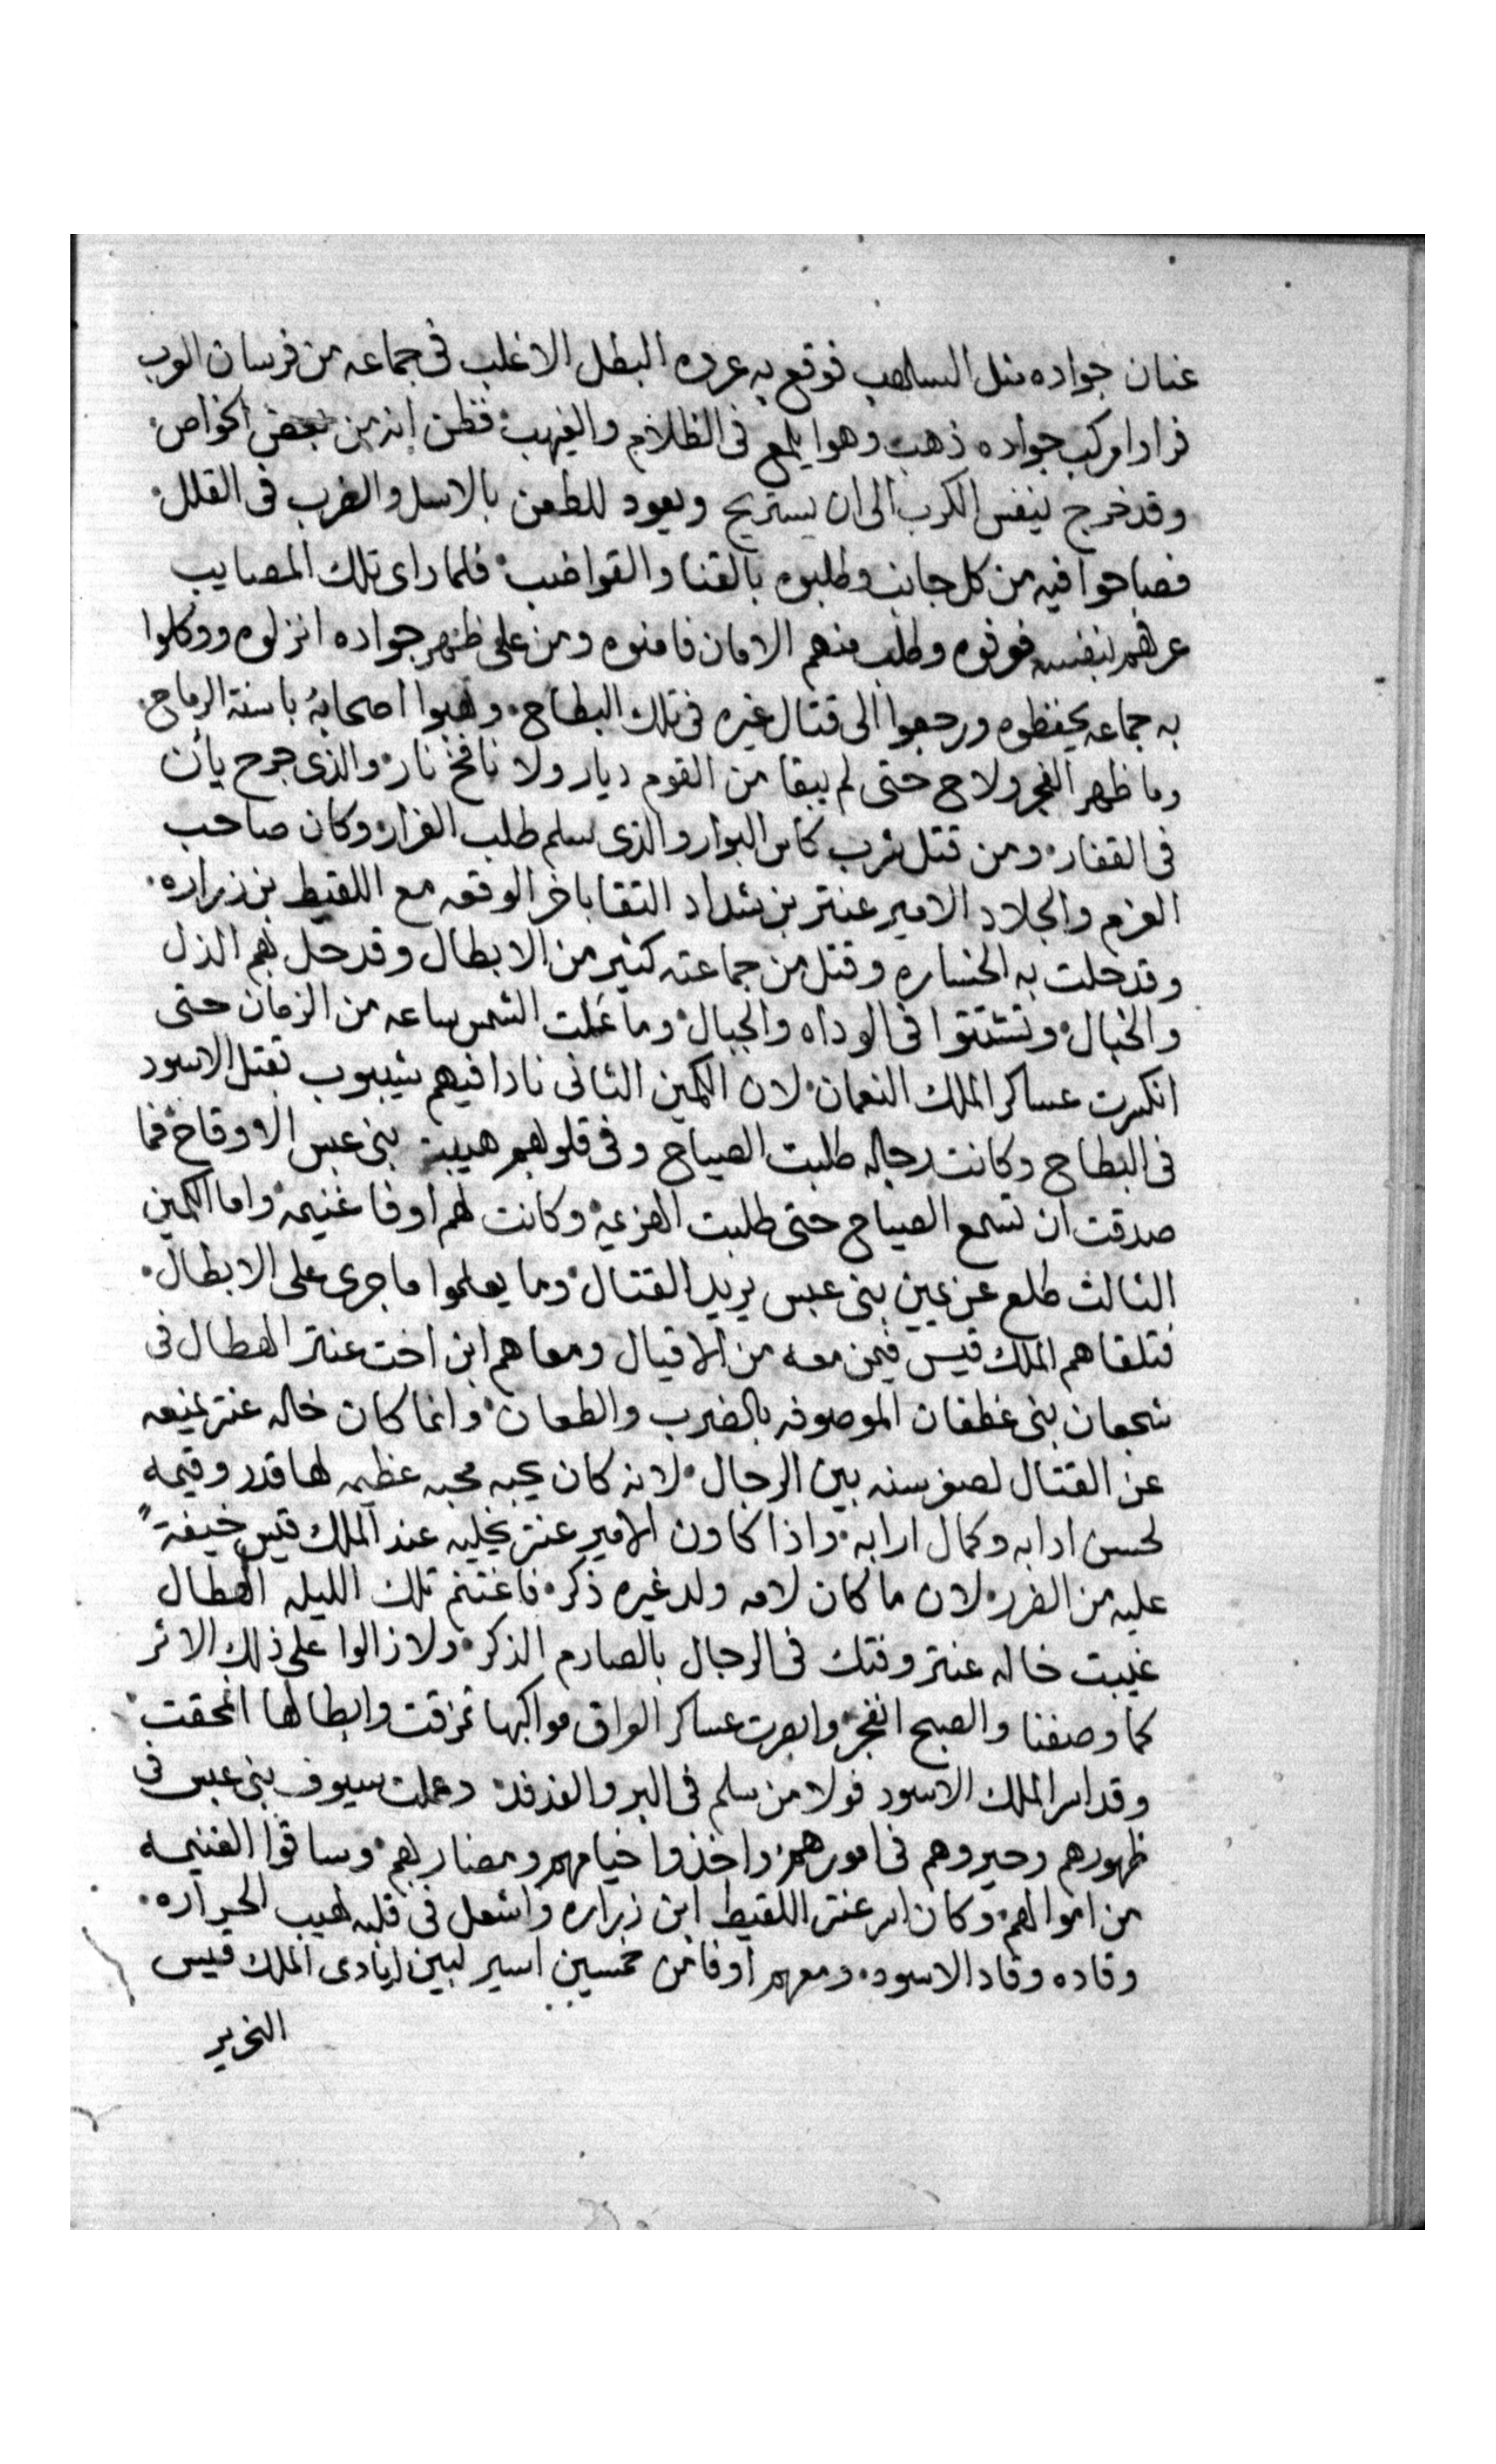 عنان جواده مثل السلهب فوقع به عروه البطل الاغلب فى جماعه من فرسان العرب
فرادا مركب جواده ذهب وهوا يلمع فى الظلام والغيهب فظن انه من بعض الخواص
وقد خرج ينفس الكرب الى ان يستريح ويعود للطعن بالاسل والضرب فى القلل
فصاحوا فيه من كل جانب وطلبوه بالقنا والقواضب فلما راى تلك المصايب
عرفهم بنفسه فعرفوه وطلب منهم الامان فامنوه ومن على ظهر جواده انزلوه ووكلوا
به جماعه يحفظوه ورجعوا الى قتال غيره فى تلك البطاح ونهبوا اصحابه باسنة الرماح
وما ظهر الفجر ولاح حتى لم يبقا من القوم ديار ولا نافخ نار والذى جرح يان
فى القفار ومن قتل شرب كاس البوار والذى سلم طلب الفرار وكان صاحب
العزم والجلاد الامير عنتر بن شداد التقا باخر الوقعه مع اللقيط بن زراره
وقد حلت به الخساره وقتل من جماعته كثير من الابطال وقد حل بهم الذل
والخبال وتشتتوا فى الوداه والجبال وما علت الشمس ساعه من الزمان حتى
انكسرت عساكر الملك النعمان لان الكمين الثانى نادا فيهم شيبوب بقتل الاسود
فى البطاح وكانت رجاله طلبت الصياح وفى قلوبهم هيبة بنى عبس الاوقاح فما
صدقت ان تسمع الصياح حتى طلبت الهزيمه وكانت لهم اوفا غنيمه واما الكمين
الثالث طلع عن يمين بنى عبس يريد القتال وما يعلموا ما جرى على الابطال
فتلقاهم الملك قيس فيمن معه من الاقيال ومعاهم ابن اخت عنتر الهطال فى
شجعان بنى غطفان الموصوفه بالضرب والطعان وانما كان خاله عنتر يمنعه
عن القتال لصغر سنه بين الرجال لانه كان يحبه محبه عظيمه لها قدر وقيمه
لحسن ادابه وكمال ارابه واذا كاون الامير عنتر يخليه عند الملك قيس خيفةً
عليه من الضرر لان ما كان لامه ولد غيره ذكر فاغتنم تلك الليله الهطال
غيبت خاله عنتر وفتك فى الرجال بالصارم الذكر ولا زالوا على ذلك الاثر
كما وصفنا والصبح انفجر وابصرت عساكر العراق مواكبها تمزقت وابطالها انمحقت
وقد اسر الملك الاسود فولا من سلم فى البر والفدفد وعملت سيوف بنى عبس فى
ظهورهم وحيروهم فى امورهم واخذوا خيامهم ومضاربهم وساقوا الغنيمه
من اموالهم وكان اسر عنتر اللقيط ابن زراره واشعل فى قلبه لهيب الحراره
وقاده وقاد الاسود ومعهم اوفا من خمسين اسير لبين ايادى الملك قيس
النحرير